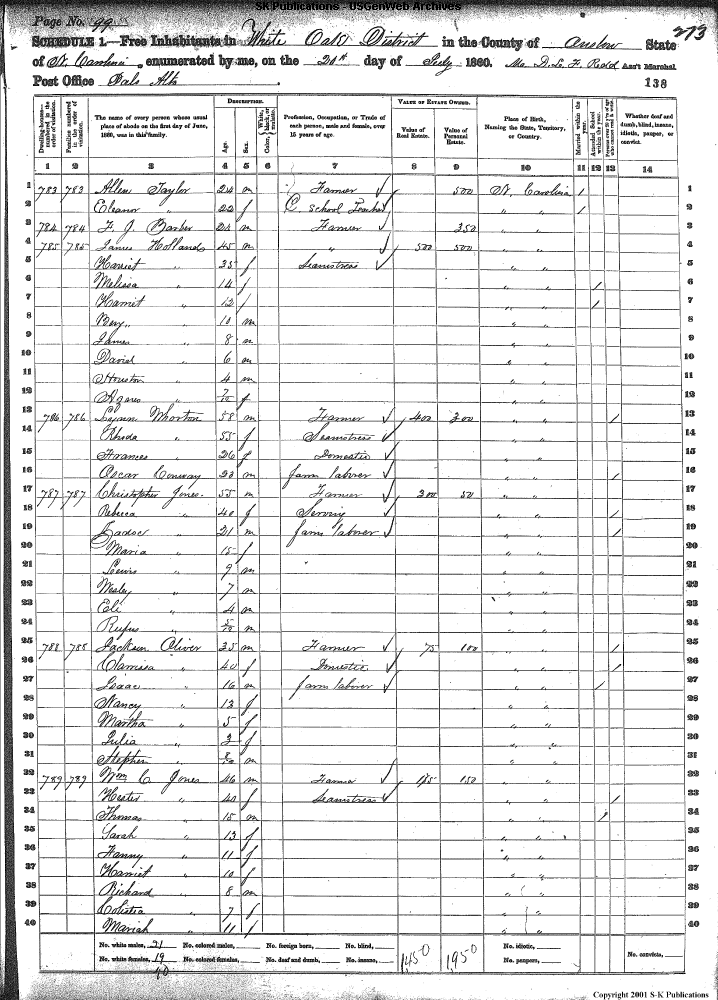 SK Publications - USGenWeb Archives
Page No. 99
273
SCHEDULE 1.—Free Inhabitants in White Oak District in the County of Onslow State
of N. Carolina enumerated by me, on the 20th day of July 1860. D. L. F. Redd Ass't Marshal
Post Office Palo Alto
138
Dwelling-houses—numbered in the order of visitation.
Families numbered in the order of visitation.
The name of every person whose usual place of abode on the first day of June, 1860, was in this family.
DESCRIPTION.
Age.
Sex.
Color, White, black, or mulatto.
Profession, Occupation, or Trade of each person, male and female, over 15 years of age.
VALUE OF ESTATE OWNED.
Value of Real Estate.
Value of Personal Estate.
Place of Birth, Naming the State, Territory, or Country.
Married within the year.
Attended School within the year.
Persons over 20 y'rs of age who cannot read & write.
Whether deaf and dumb, blind, insane, idiotic, pauper, or convict.
1 2 3 4 5 6 7 8 9 10 11 12 13 14
1 783 783 Allen Taylor 24 m Farmer 500 N. Carolina / 1
2 Eleanor " 22 f C. School Teacher " " / 2
3 784 784 F. J. Barber 24 m Farmer 350 " " 3
4 785 785 James Hollands 45 m " 500 500 " " 4
5 Harriet " 35 f Seamstress " " 5
6 Melissa " 14 f " " / 6
7 Harriet " 12 f " " / 7
8 Benj. " 10 m " " 8
9 James " 8 m " " 9
10 David " 6 m " " 10
11 Houston " 4 m " " 11
12 " f " " 12
13 786 786 Whorton 58 m Farmer 400 300 " " / 13
14 Rhoda " 55 f Seamstress " " 14
15 Frances " 26 f Domestic " " 15
16 Oscar Conway 20 m farm laborer " " / 16
17 787 787 Christopher Jones 55 m Farmer 200 50 " " 17
18 Rebecca " 40 f Serving " " / 18
19 Zadoc " 21 m farm laborer " " / 19
20 Maria " 15 f " " 20
21 Lewis " 9 m " " 21
22 Wesley " 7 m " " 22
23 Eli " 4 m " " 23
24 Rufus " m " " 24
25 788 788 Jackson Oliver 35 m Farmer 75 100 " " / 25
26 Clarrisa " 40 f Domestic " " / 26
27 Isaac " 16 m farm laborer " " / 27
28 Nancy " 13 f " " 28
29 Martha " 5 f " " 29
30 Julia " 3 f " " 30
31 Stephen " m " " 31
32 789 789 Wm C. Jones 46 m Farmer 150 " " 32
33 Hester " 40 f Seamstress " " / 33
34 Thomas " 15 m " " / 34
35 Sarah " 13 f " " 35
36 Fanny " 11 f " " 36
37 Harriet " 10 f " " 37
38 Richard " 8 m " " 38
39 " 7 f " " 39
40 Mariah " 11 f " " 40
No. white males, 21 No. colored males, No. foreign born, No. blind, 1450 1950 No. idiotic, No. convicts,
No. white females, 19 No. colored females, No. deaf and dumb, No. insane, No. paupers,
40
Copyright 2001 S-K Publications